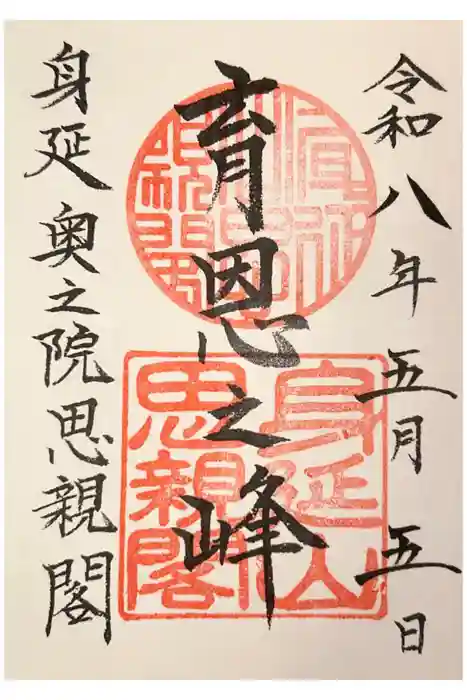 令和八年五月五日
育恩之峰
身延山
思親閣
身延奥之院思親閣